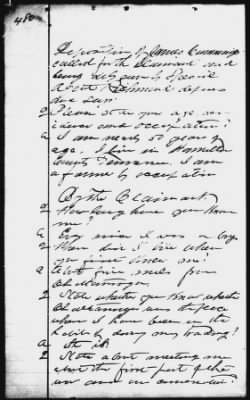 480
Deposition of James Cummings
called for the Claimant and
being duly sworn by Special
about
due
Q Please state your age, resi-
dence and occupation?
A I am nearly 50 years of
age. I live in Hamilton
County Tennessee. I am
a farmer by occupation
By the Claimant
Q How long have you known
me?
A Ever since I was a boy
Q Where did I live when
you first knew me?
A About five miles from
Chattanooga
Q State whether you know whether
Chattanooga was the place
where I have been in the
habit of doing my trading?
A It is
Q State about meeting me
about the first part of the
war and in